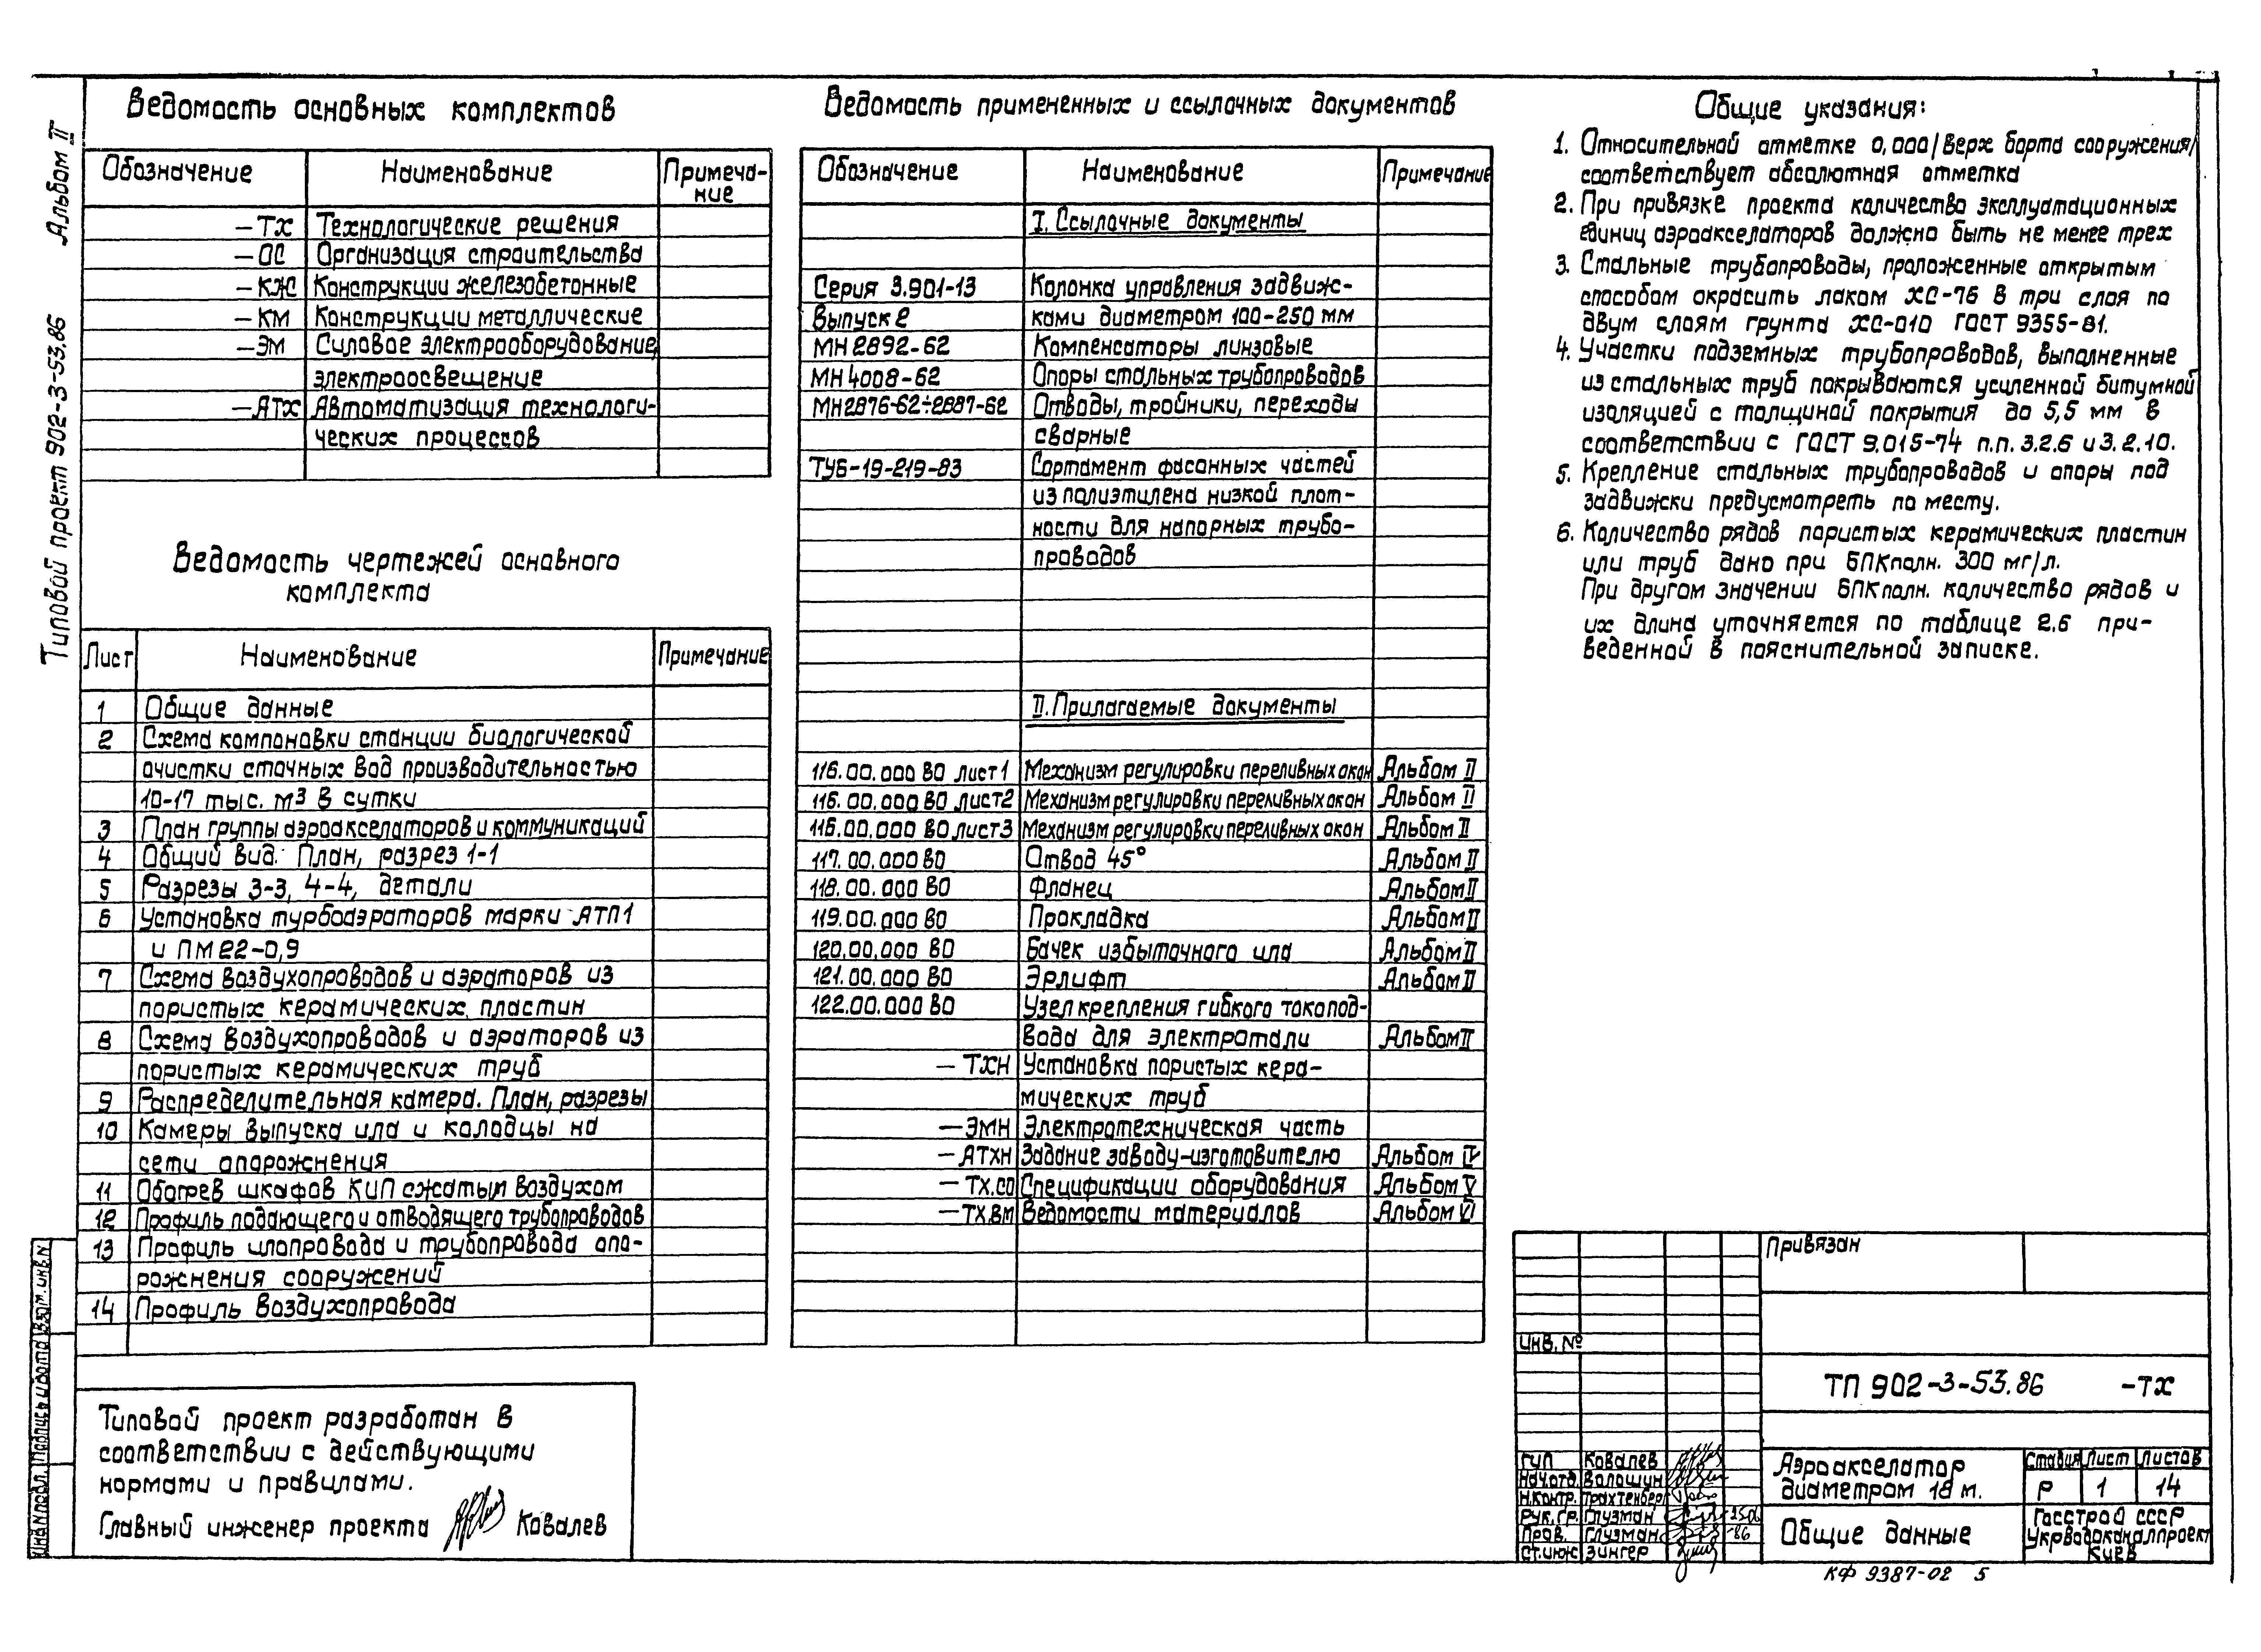 Альбом II
Типовой проект 902-3-53.86
Ведомость основных комплектов
Обозначение Наименование Примеча-
ние
—ТХ Технологические решения
—ОС Организация строительства
—КЖ Конструкции железобетонные
—КМ Конструкции металлические
—ЭМ Силовое электрооборудование,
электроосвещение
—АТХ Автоматизация технологи-
ческих процессов
Ведомость чертежей основного
комплекта
Лист Наименование Примечание
1 Общие данные
2 Схема компоновки станции биологической
очистки сточных вод производительностью
10-17 тыс. м3 в сутки
3 План группы аэроакселаторов и коммуникаций
4 Общий вид. План, разрез 1-1
5 Разрезы 3-3, 4-4, детали
6 Установка турбоаэраторов марки АТП1
и ПМ22-0,9
7 Схема воздухопроводов и аэраторов из
пористых керамических пластин
8 Схема воздухопроводов и аэраторов из
пористых керамических труб
9 Распределительная камера. План, разрезы
10 Камеры выпуска ила и колодцы на
сети опорожнения
11 Обогрев шкафов КИП сжатым воздухом
12 Профиль подающего и отводящего трубопроводов
13 Профиль илопровода и трубопровода опо-
рожнения сооружений
14 Профиль воздухопровода
Типовой проект разработан в
соответствии с действующими
нормами и правилами.
Главный инженер проекта Ковалев
Ведомость примененных и ссылочных документов
Обозначение Наименование Примечание
I. Ссылочные документы
Серия 3.901-13 Колонка управления задвиж-
Выпуск 2 ками диаметром 100-250 мм
МН 2892-62 Компенсаторы линзовые
МН 4008-62 Опоры стальных трубопроводов
МН2876-62÷2887-62 Отводы, тройники, переходы
сварные
ТУ6-19-219-83 Сортамент фасонных частей
из полиэтилена низкой плот-
ности для напорных трубо-
проводов
II. Прилагаемые документы
116.00.000 ВО лист1 Механизм регулировки переливных окон Альбом II
116.00.000 ВО лист2 Механизм регулировки переливных окон Альбом II
116.00.000 ВО лист3 Механизм регулировки переливных окон Альбом II
117.00.000 ВО Отвод 45° Альбом II
118.00.000 ВО Фланец Альбом II
119.00.000 ВО Прокладка Альбом II
120.00.000 ВО Бачек избыточного ила Альбом II
121.00.000 ВО Эрлифт Альбом II
122.00.000 ВО Узел крепления гибкого токопод-
вода для электротали Альбом II
— ТХН Установка пористых кера-
мических труб
—ЭМН Электротехническая часть
—АТХН Задание заводу-изготовителю Альбом IV
—ТХ.СО Спецификации оборудования Альбом V
—ТХ.ВМ Ведомости материалов Альбом VI
Общие указания:
1. Относительной отметке 0,000/верх борта сооружения/
соответствует абсолютная отметка
2. При привязке проекта количество эксплуатационных
единиц аэроакселаторов должно быть не менее трех
3. Стальные трубопроводы, проложенные открытым
способом окрасить лаком ХС-76 в три слоя по
двум слоям грунта ХС-010 ГОСТ 9355-81.
4. Участки подземных трубопроводов, выполненные
из стальных труб покрываются усиленной битумной
изоляцией с толщиной покрытия до 5,5 мм в
соответствии с ГОСТ 9.015-74 п.п. 3.2.6 и 3.2.10.
5. Крепление стальных трубопроводов и опоры под
задвижки предусмотреть по месту.
6. Количество рядов пористых керамических пластин
или труб дано при БПКполн. 300 мг/л.
При другом значении БПКполн. количество рядов и
их длина уточняется по таблице 2.6 при-
веденной в пояснительной записке.
Привязан
Инв. №
ТП 902-3-53.86 -ТХ
ГИП Ковалев
Нач.отд. Волошин
Н.контр. Трахтенберг
Рук.гр. Глузман
Пров. Глузман -86
Ст.инж Зингер
Аэроакселатор
диаметром 18 м.
Стадия Лист Листов
Р 1 14
Общие данные
Госстрой СССР
Укрводоканалпроект
Киев
КФ 9387-02 5
Инв.№подл. Подпись и дата Взам. инв.N